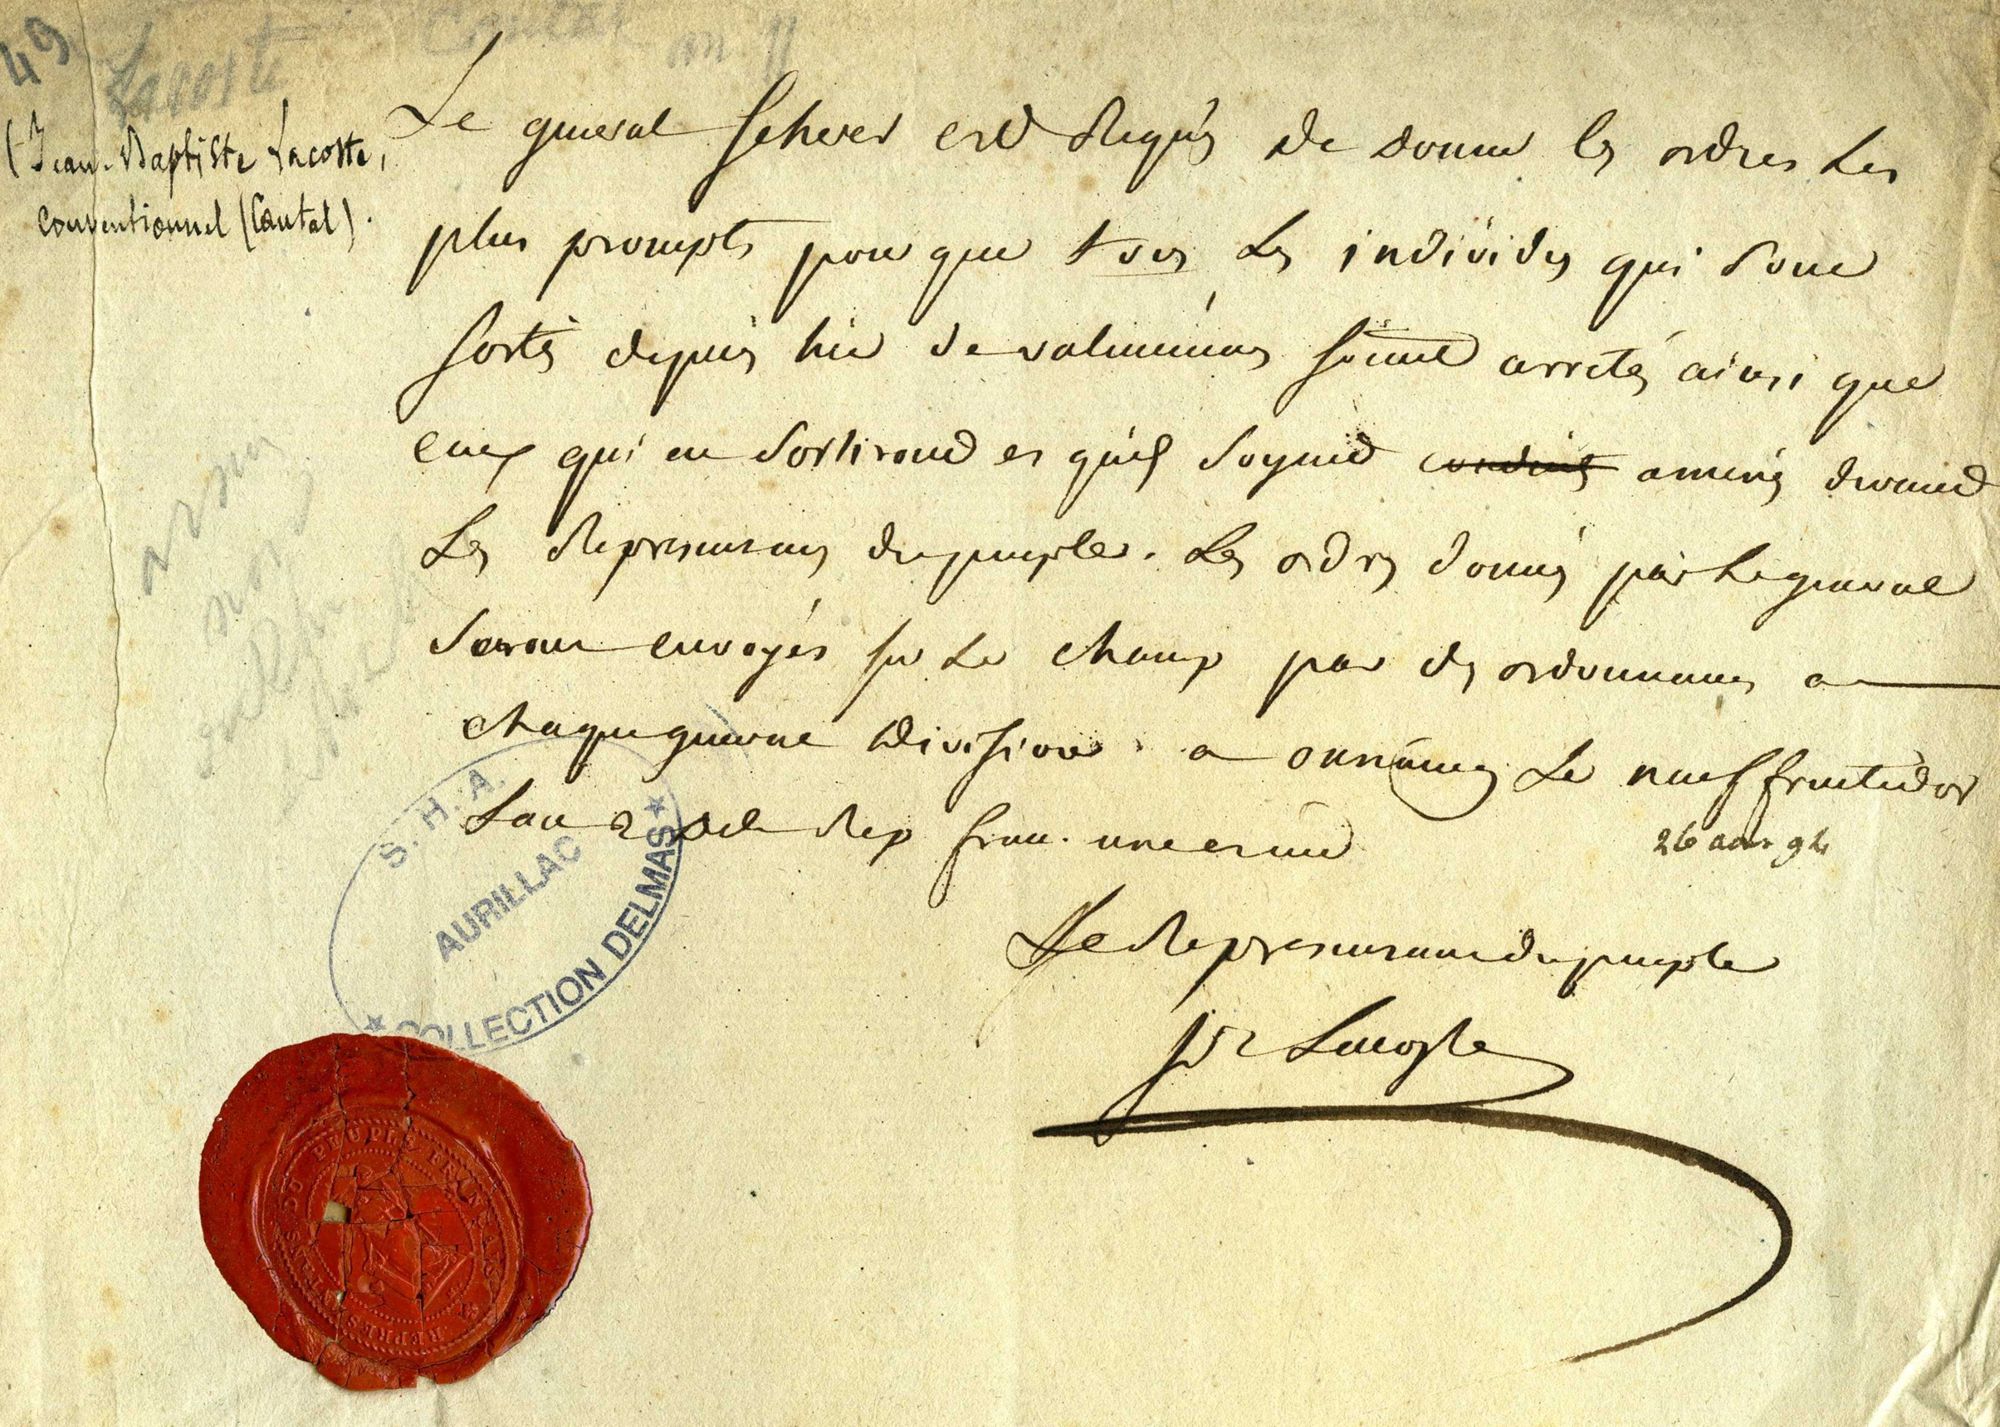 49
Lacoste Cantal an II
(Jean-Baptiste Lacoste,
conventionnel (Cantal).
Le general Scherer est Requis de donner les ordres les
plus prompts pour que tous les individus qui sont
sortis depuis hier de valenciennes soient arretés ainsi que
ceux qui en sortiront et qu'ils soyent conduits amenés devant
Les Representans du peuple. Les ordres donnés par le general
seront envoyés sur le champ par des ordonnances a
chaque general division. a le neuf fructidor
Lan 2 de la Rep franc. une et ind
26 août 94
Le Representant du peuple
J B Lacoste
S. H. A.
AURILLAC
COLLECTION DELMAS
REPRESENTANS DU PEUPLE FRANÇAIS